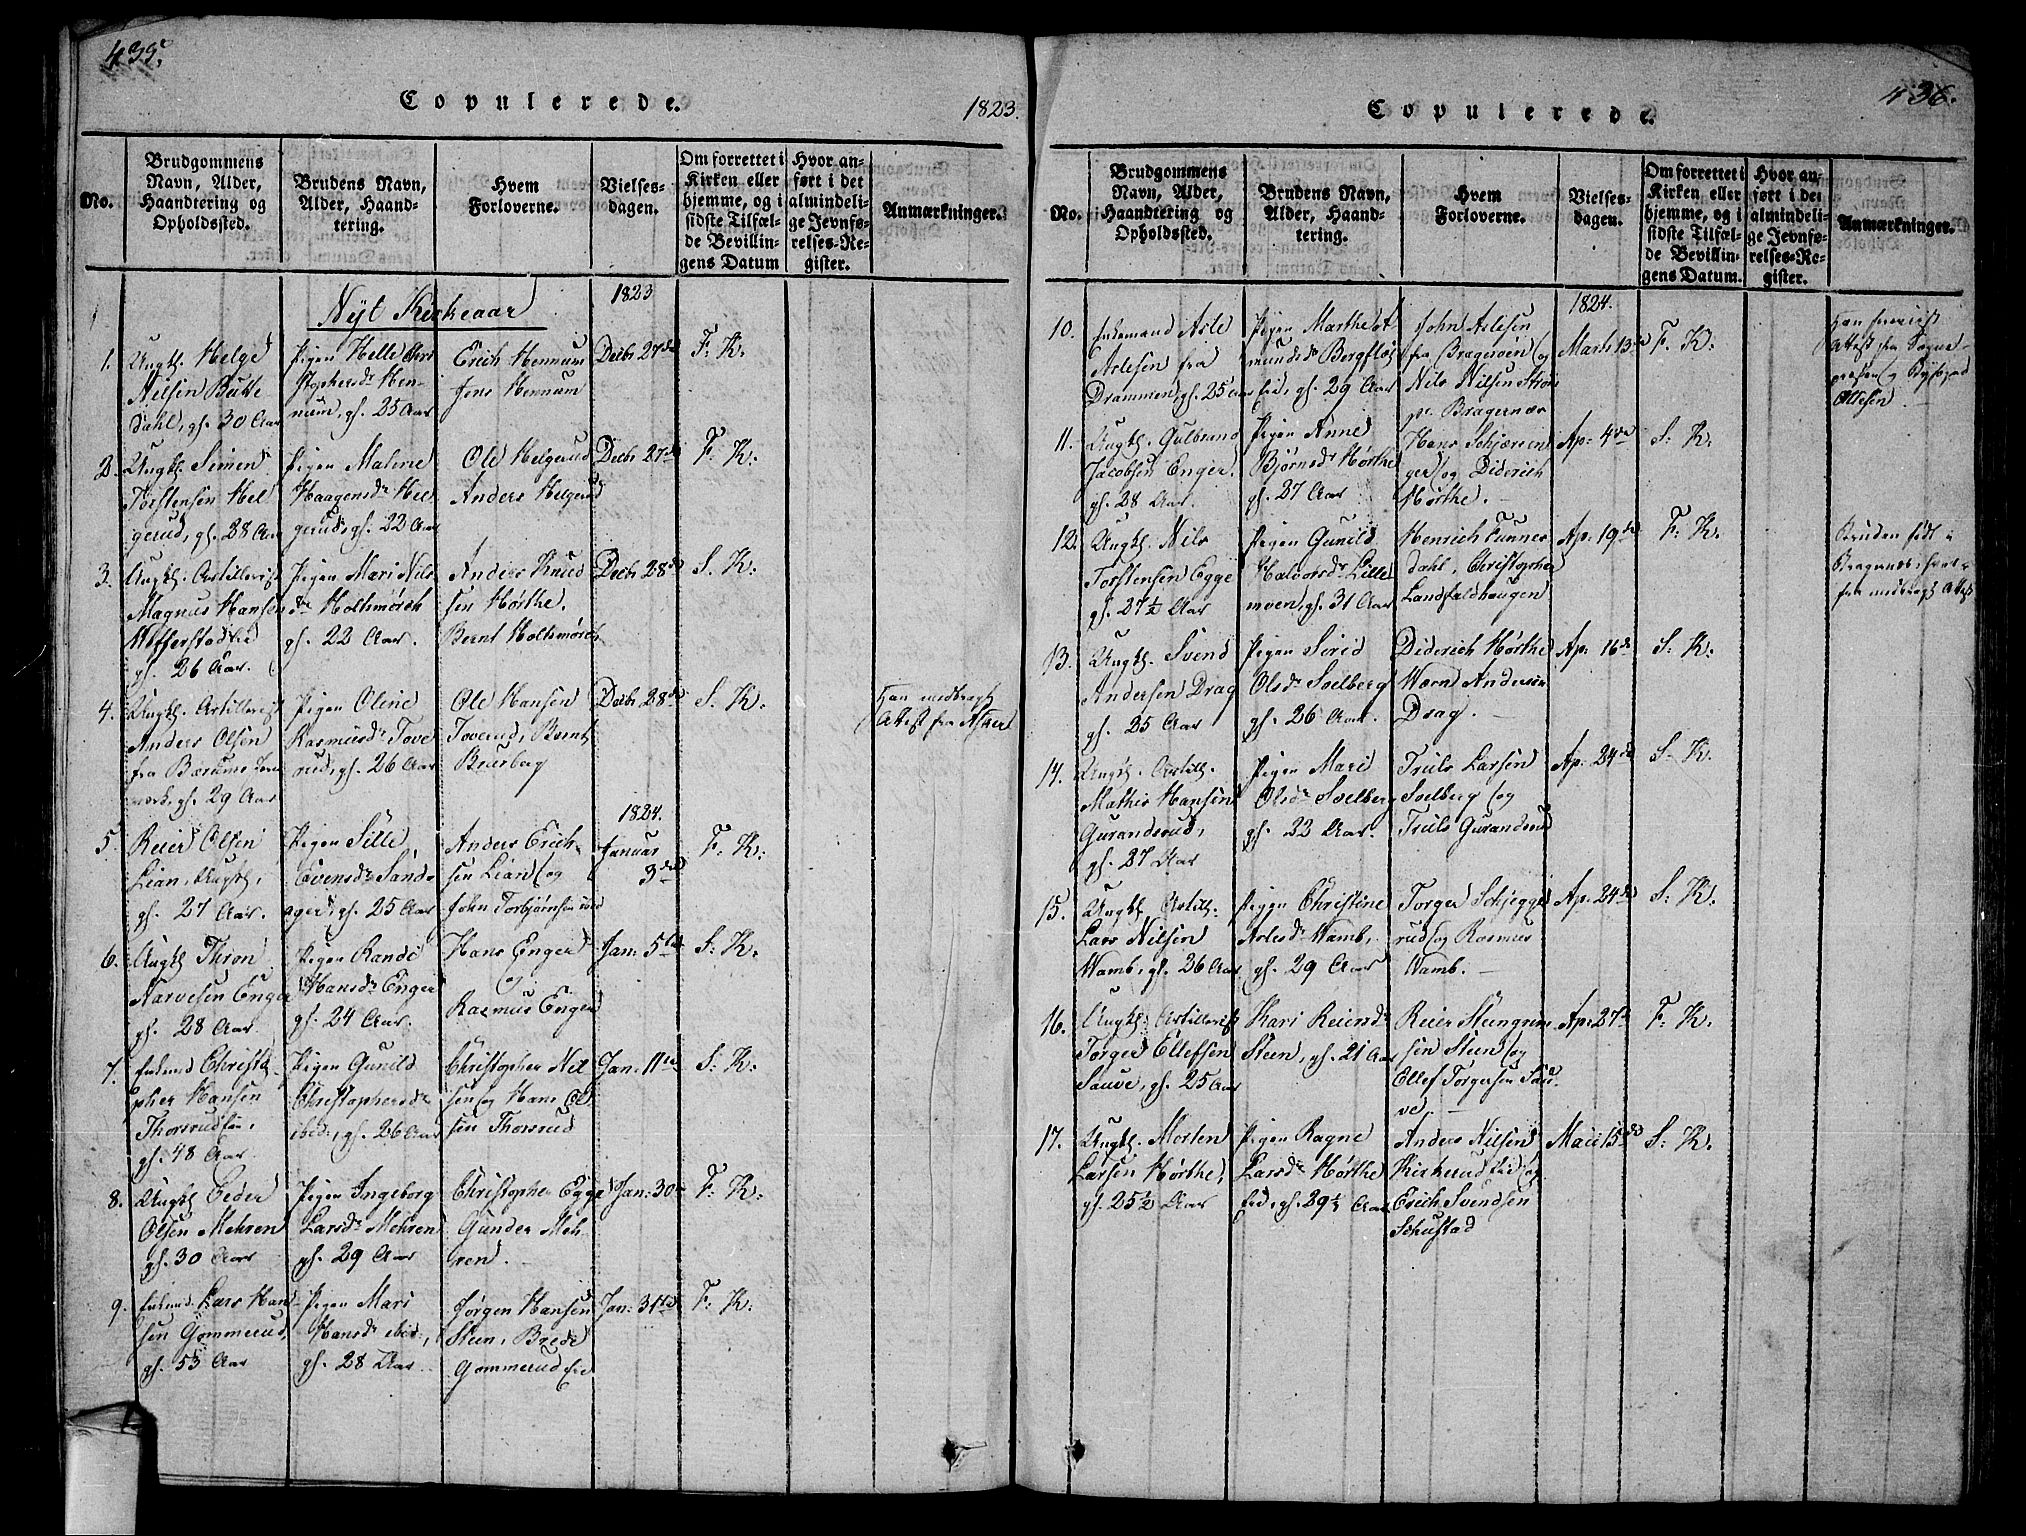 435.
Copulerede.
1823.
No.
Brudgommens Navn, Alder, Haandtering og Opholdssted.
Brudens Navn, Alder, Haandtering.
Hvem Forloverne.
Vielsesdagen.
Om forrettet i Kirken eller hjemme, og i sidste Tilfælde Bevillingens Datum
Hvor anført i det almindelige Jevnførelses-Register.
Anmærkninger.
Nyt Kirkeaar
1823
1.
Ungk. Helge
Nilsen Butte
dahl, gl. 30 Aar
Pigen Helle Chri
stophersdr Hen
num, gl. 25 Aar
Erich Hennum
Jens Hennum
Decbr 27de
F. K.
2.
Ungk. Simen
Torstensen Hel
gerud, gl. 28 Aar
Pigen Malene
Haagensdr Hel
gerud, gl. 22 Aar
Ole Helgerud
Anders Helgerud
Decbr 27de
F. K.
3.
Ungk. Artillerist
Magnus Hansen
gl. 26 Aar.
Pigen Mari Nils
dr Holtsmörch
gl. 22 Aar.
Anders Knud
sen Hørthe.
Bernt Holtsmörch
Decbr 28de
S. K.
4.
Ungk. Artillerist
Anders Olsen
fra Bærums Jern
werk, gl. 29 Aar
Pigen Oline
Rasmusdr Tove
rud, gl. 26 Aar
Ole Hansen
Toverud, Bernt
Bruberg
Decbr 28de
S. K.
Han medbragt
Attest fra Asker
1824.
5.
Reier Olsen
Lian, Ungk.
gl. 27 Aar.
Pigen Sille
Evensdr Sand
ager, gl. 25 Aar
Anders Erich
sen Lian og
John Torbjørnsen
Januar
3de
F. K.
6.
Ungk. Thron
Narvesen Enger
gl. 28 Aar.
Pigen Rande
Hansdr Enger
gl. 24 Aar.
Hans Enger
og
Rasmus Enger
Jan: 5te
S. K.
7.
Enkemd Christo
pher Hansen
Thorsrud
gl. 48 Aar.
Pigen Gunild
Christophersdr
ibid:, gl. 26 Aar
Christopher Nil
sen og Hans Ol
sen Thorsrud
Jan: 11te
S: K:
8.
Ungk. Peder
Olsen Mehren
gl. 30 Aar
Pigen Ingeborg
Larsdr Mehren
gl. 29 Aar
Christopher Egge
Gunder Meh
ren.
Jan: 30
F. K.
9.
Enkemd Lars Han
sen Gommerud,
gl. 53 Aar
Pigen Mari
Hansdr ibid:,
gl. 28 Aar.
Jørgen Hansen
Steen, Brede
Gommerud
Jan: 31te
F. K.
436.
Copulerede.
No.
Brudgommens Navn, Alder, Haandtering og Opholdssted.
Brudens Navn, Alder, Haandtering.
Hvem Forloverne.
Vielsesdagen.
Om forrettet i Kirken eller hjemme, og i sidste Tilfælde Bevillingens Datum.
Hvor anført i det almindelige Jevnførelses-Register.
Anmærkninger.
1824.
10.
Enkemand Asle
Aslesen fra
Drammen, gl. 25 Aar
Pigen Marthe
mundsdr
gl. 29 Aar
John Aslesen
fra Bragerøen og
Nils Nilsen
paa Bragernæs
Marts 13de
F. K.
Attest fra Sogne
præsten og
11.
Ungk. Gulbrand
Jacobsen Enger.
gl. 28 Aar.
Pigen Anne
Bjørnsdr Hørthe
gl. 27 Aar
Hans Schjersen
ger og Diderich
Hørthe.
Ap: 4de
S. K.
12.
Ungk. Nils
Torstensen Egge
gl. 27½ Aar
Pigen Gunild
Halvorsdr Lille
moen, gl. 31 Aar
Henrich Tunner
dahl, Christopher
Landfaldhaugen
Ap: 19de
F. K.
Bruden født i
Bragernæs, hvor
fra medbragt Attest
13.
Ungk. Svend
Andersen Drag
gl. 25 Aar
Pigen Sirid
Olsdr Soelberg
gl. 26 Aar.
Diderich Hørthe
Wærn Andersen
Drag.
Ap: 16de
S. K.
14.
Ungk. Artill.
Mathis Hansen
Guranderud,
gl. 27 Aar
Pigen Mari
Olsdr Soelberg
gl. 22 Aar.
Truls Larsen
Soelberg og
Truls Guranderud
Ap: 24de
S. K.
15.
Ungk. Artill.
Lars Nilsen
Wamb, gl. 26 Aar
Pigen Christine
Aslesdr Wamb,
gl. 29 Aar
Torger Schjegge
rud og Rasmus
Wamb.
Ap: 24de
S. K.
16.
Ungk. Artillerist
Torger Ellefsen
Sauve, gl. 25 Aar
Kari Reiersdr
Steen, gl. 21 Aar
Reier Steengrim
sen Steen og
Ellef Torgersen Sau
ve.
Ap: 27de
F. K.
17.
Ungk. Morten
Larsen Hørthe,
gl. 25½ Aar
Pigen Ragne
Larsdr Hørthe
eid, gl. 29½ Aar
Anders Nilsen
Kirkerud og
Erich Svendsen
Schustad
Maii 15de
S. K.